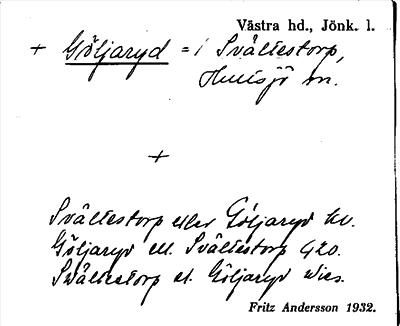 Västra hd., Jönk. l.
+ Göljaryd = i Svältestorp,
Hultsjö sn.
+
Svältestorp eller Göljaryd kv.
Göljaryd ell. Svältestorp G20.
Svältestorp el. Göljaryd Wies.
Fritz Andersson 1932.